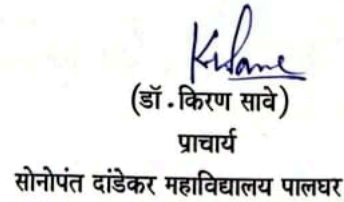 (डॉ.किरण सावे)
प्राचार्य
सोनोपंत दांडेकर महाविद्यालय पालघर